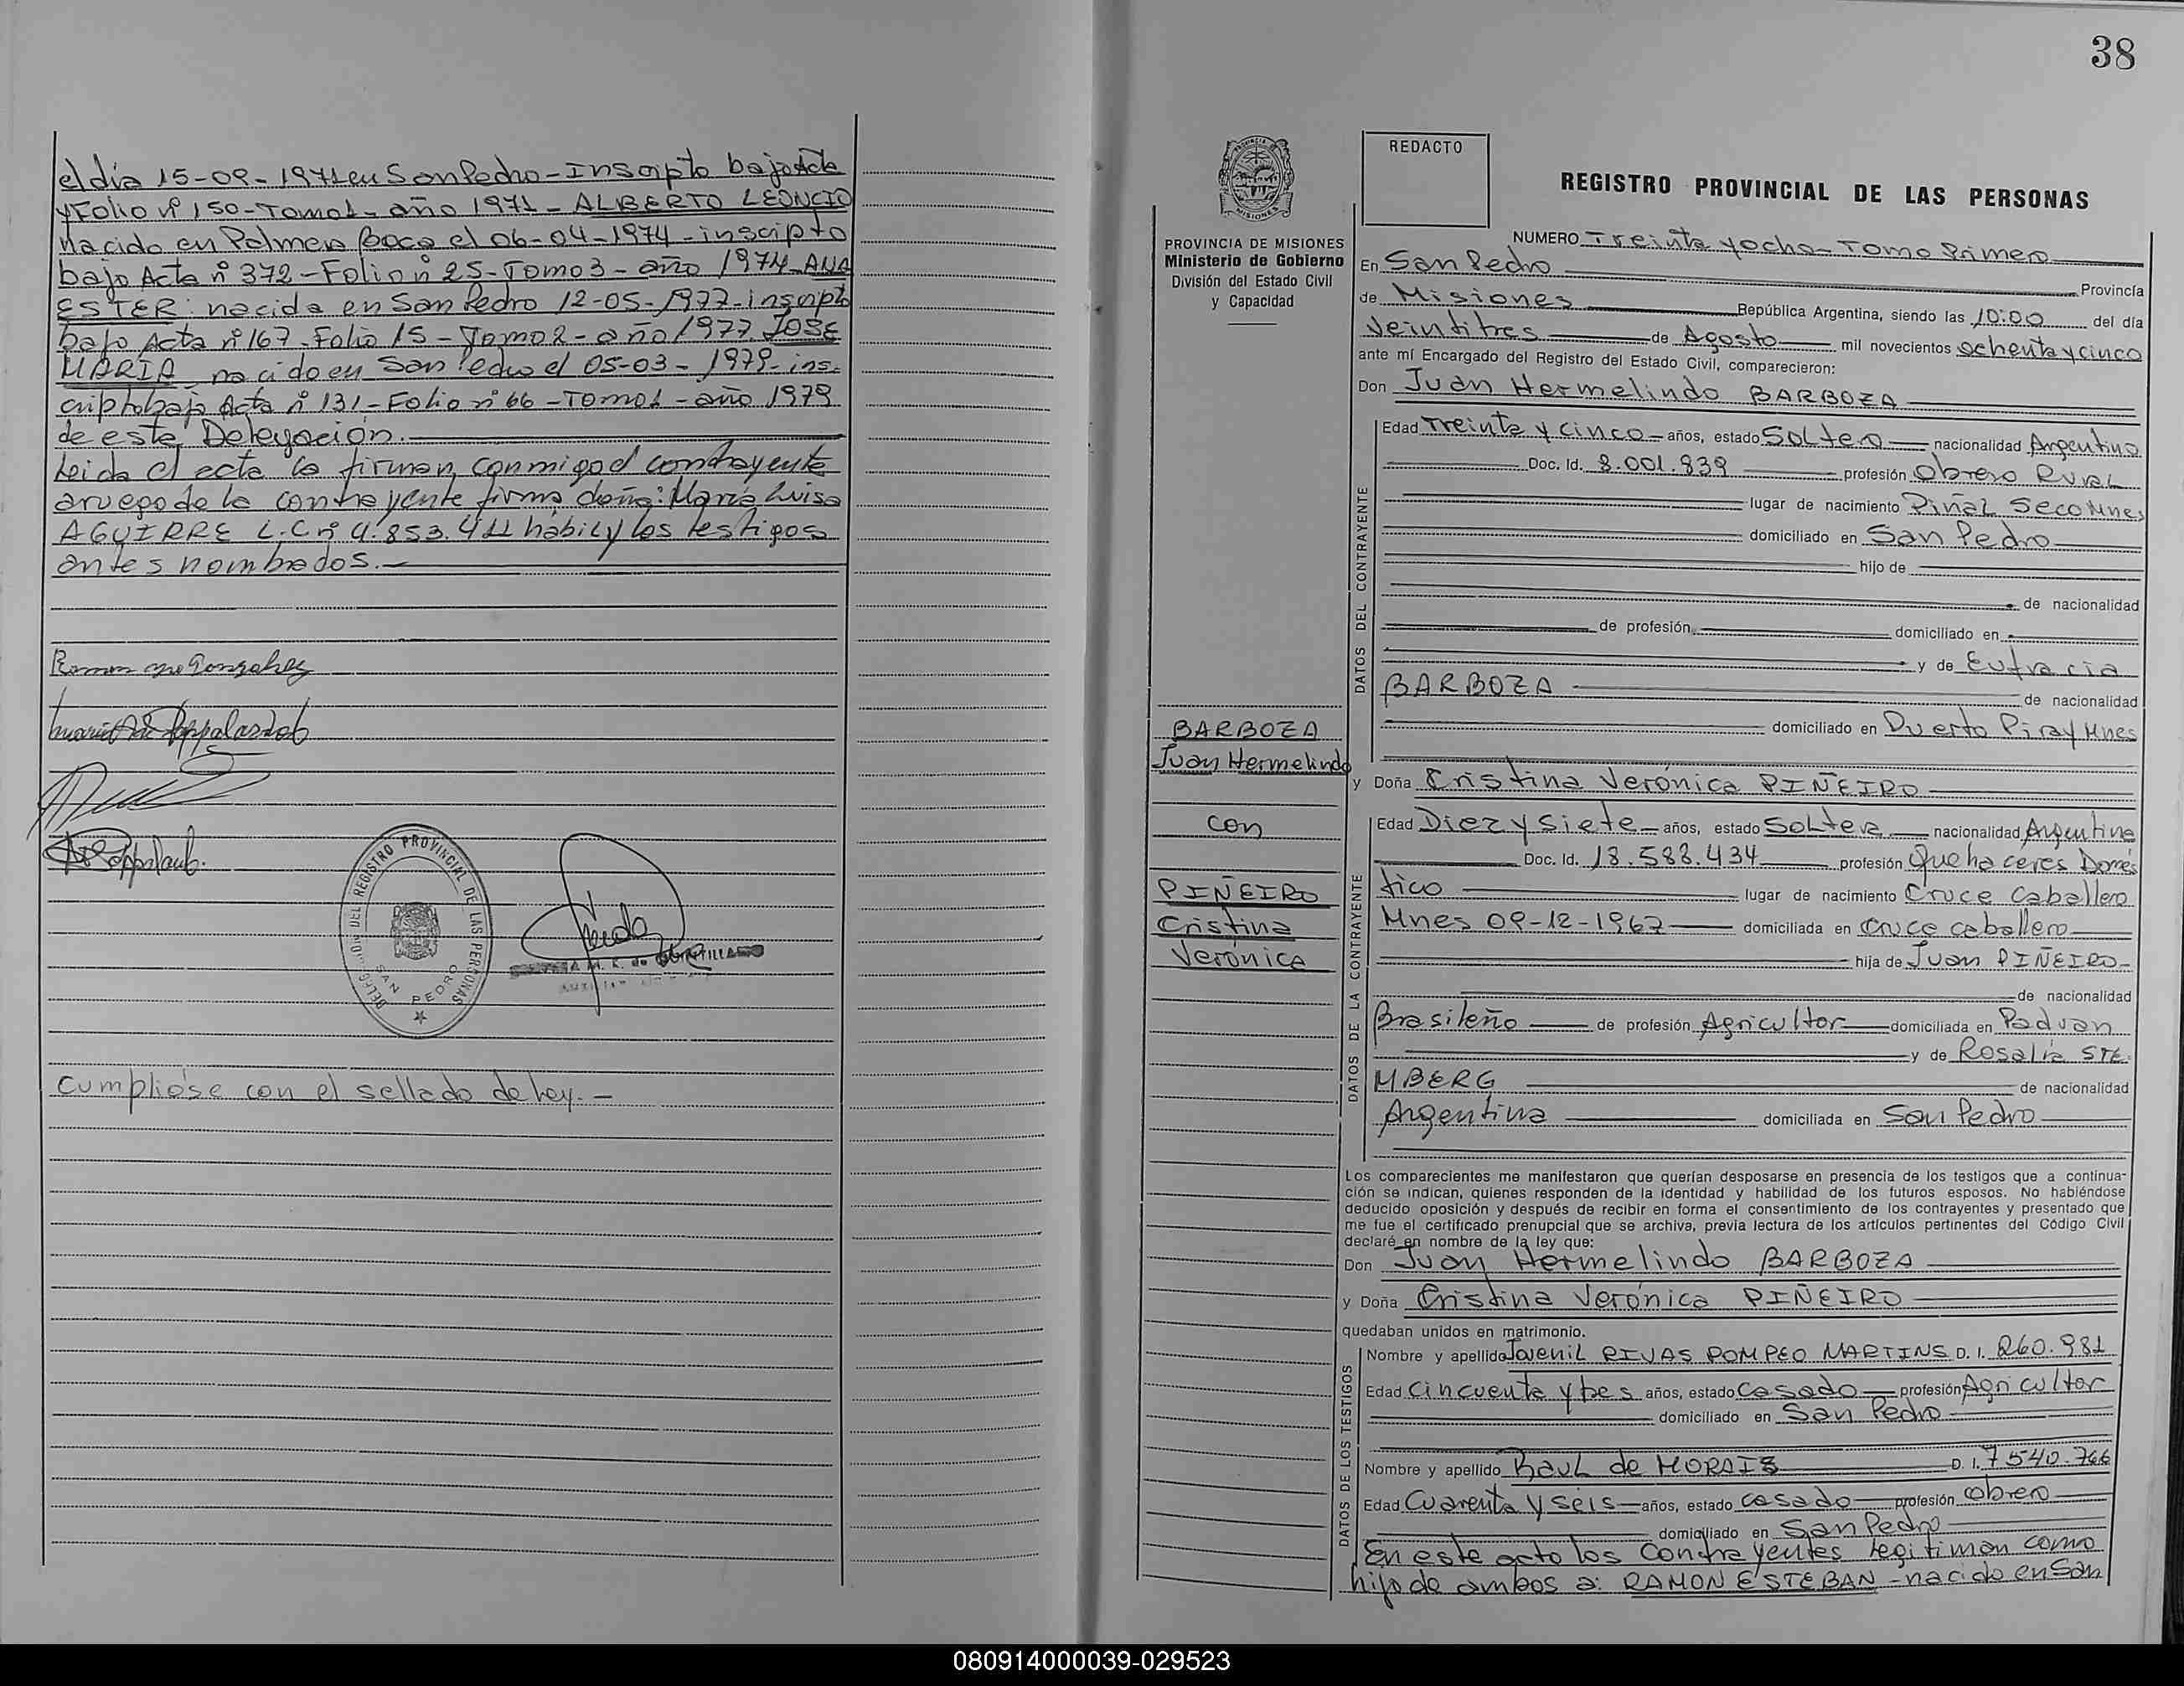 el día 15-09-1971 en San Pedro-Inscripto bajo Acta
y Folio nº 150-Tomo 1-año 1971-ALBERTO LEONCIO
nacido en Palmera Boca el 06-04-1974-inscripto
bajo Acta nº 372-Folio nº 25-Tomo 3-año 1974-ANA
ESTER: nacida en San Pedro 12-05-1977-inscripta
bajo Acta nº 167-Folio 15-Tomo 2-año 1977. JOSE
MARIA nacido en San Pedro el 05-03-1979-ins-
cripto bajo Acta nº 131-Folio nº 66-Tomo 1-año 1979
de este Delegación.
Leida el acta la firman conmigo el contrayente
a ruego de la contrayente firma doña: María Luisa
AGUIRRE L.C nº 4.853.411 hábil y los testigos
antes nombrados.-
Ramon Gonzalez
DELEGACION DEL REGISTRO PROVINCIAL DE LAS PERSONAS
SAN PEDRO
M. R. de QUINTILLAN
cumplióse con el sellado de ley.-
38
PROVINCIA DE MISIONES
Ministerio de Gobierno
División del Estado Civil
y Capacidad
BARBOZA
Juan Hermelindo
con
PIÑEIRO
Cristina
Verónica
REDACTO
REGISTRO PROVINCIAL DE LAS PERSONAS
NUMERO Treinta y ocho-Tomo Primero
En San Pedro Provincia
de Misiones República Argentina, siendo las 10:00 del día
Veintitres de Agosto mil novecientos ochenta y cinco
ante mí Encargado del Registro del Estado Civil, comparecieron:
Don Juan Hermelindo BARBOZA
DATOS DEL CONTRAYENTE
Edad Treinta y cinco años, estado Soltero nacionalidad Argentino
Doc. Id. 8.001.839 profesión Obrero Rural
lugar de nacimiento Piñal Seco Mnes
domiciliado en San Pedro
hijo de
de nacionalidad
de profesión domiciliado en
y de Eufracia
BARBOZA de nacionalidad
domiciliado en Puerto Piray Mnes
y Doña Cristina Verónica PIÑEIRO
DATOS DE LA CONTRAYENTE
Edad Diez y siete años, estado Soltera nacionalidad Argentina
Doc. Id. 18.588.434 profesión Quehaceres Domés
tico lugar de nacimiento Cruce Caballero
Mnes 09-12-1967 domiciliada en Cruce caballero
hija de Juan PIÑEIRO
de nacionalidad
Brasileño de profesión Agricultor domiciliada en Paduan
y de Rosalía STE
MBERG de nacionalidad
Argentina domiciliada en San Pedro
Los comparecientes me manifestaron que querían desposarse en presencia de los testigos que a continua-
ción se indican, quienes responden de la identidad y habilidad de los futuros esposos. No habiéndose
deducido oposición y después de recibir en forma el consentimiento de los contrayentes y presentado que
me fue el certificado prenupcial que se archiva, previa lectura de los artículos pertinentes del Código Civil
declaré en nombre de la ley que:
Don Juan Hermelindo BARBOZA
y Doña Cristina Verónica PIÑEIRO
quedaban unidos en matrimonio.
DATOS DE LOS TESTIGOS
Nombre y apellido Jovenil RIVAS POMPEO MARTINS D. I. 260.981
Edad Cincuenta y tres años, estado Casado profesión Agricultor
domiciliado en San Pedro
Nombre y apellido Raul de MORAIS D. I. 7540.766
Edad Cuarenta y seis años, estado casado profesión obrero
domiciliado en San Pedro
En este acto los Contrayentes legitiman como
hijo de ambos a: RAMON ESTEBAN-nacido en San
080914000039-029523